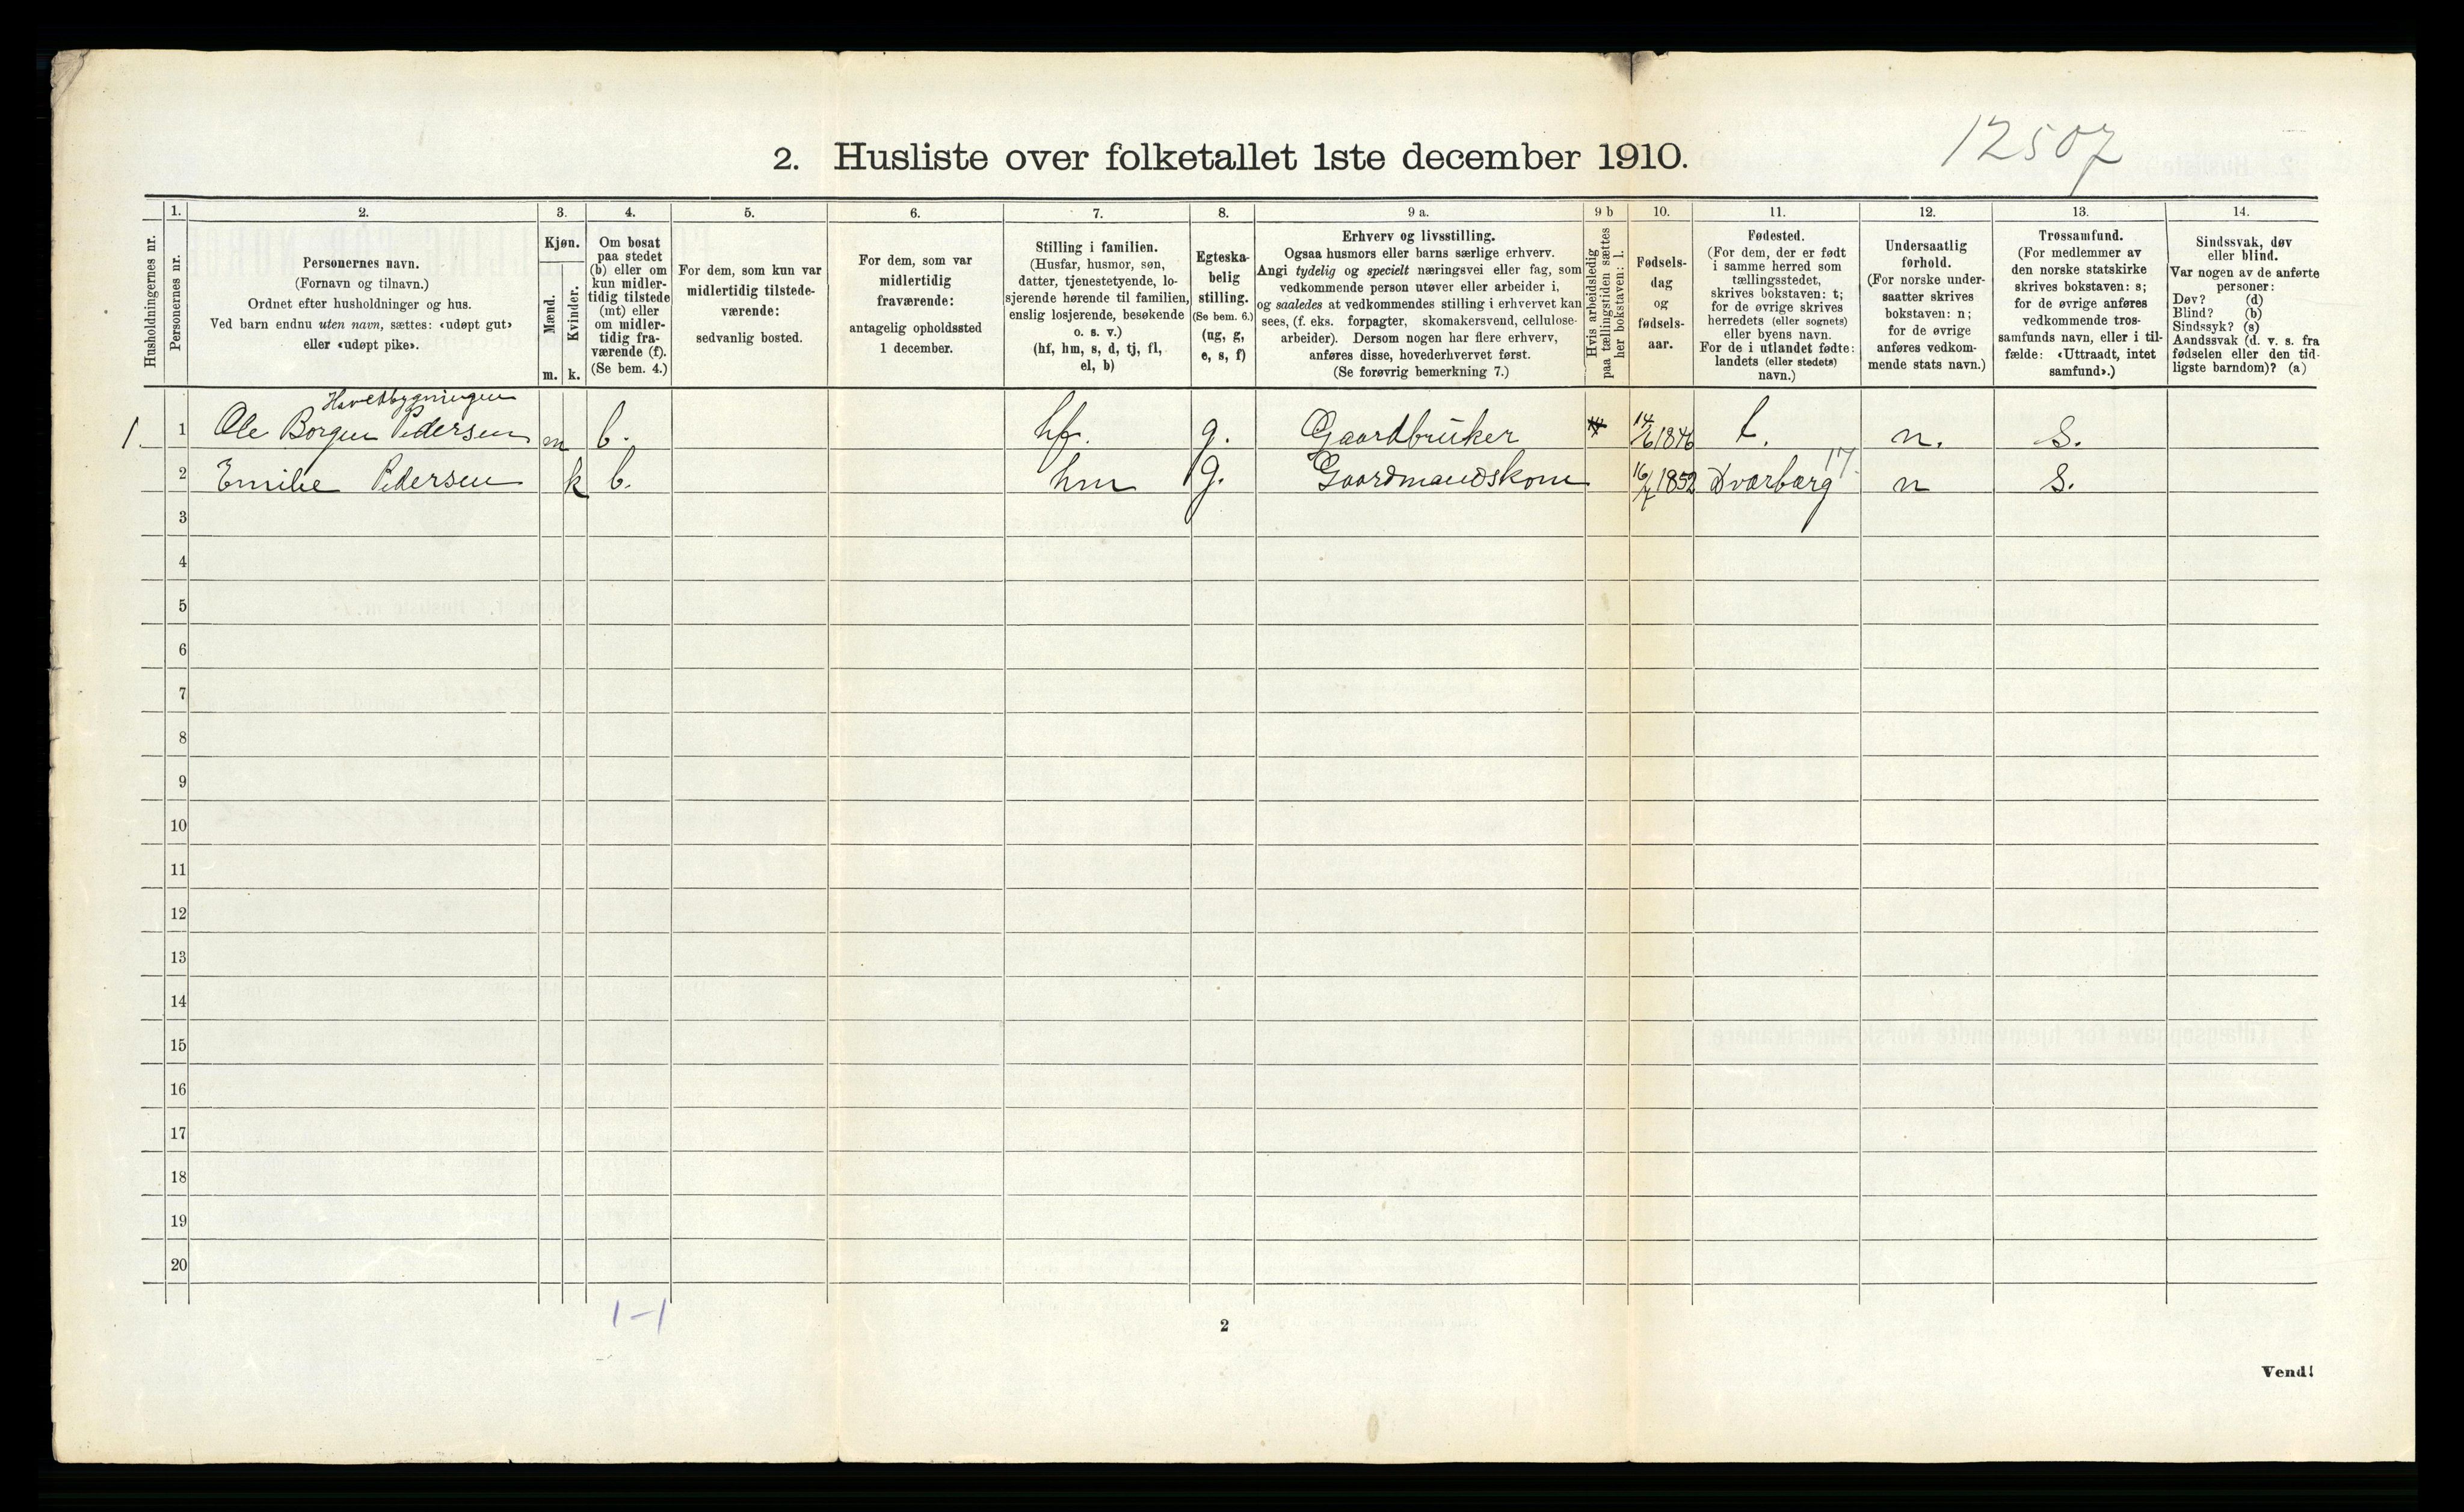 12507
2. Husliste over folketallet 1ste december 1910.
Husholdningernes nr.
1.
Personernes nr.
2.
Personernes navn.
(Fornavn og tilnavn.)
Ordnet efter husholdninger og hus.
Ved barn endnu uten navn, sættes: «udøpt gut»
eller «udøpt pike».
3.
Kjøn.
Mænd.
Kvinder.
m. k.
4.
Om bosat
paa stedet
(b) eller om
kun midler-
tidig tilstede
(mt) eller
om midler-
tidig fra-
værende (f).
(Se bem. 4.)
5.
For dem, som kun var
midlertidig tilstede-
værende:
sedvanlig bosted.
6.
For dem, som var
midlertidig
fraværende:
antagelig opholdssted
1 december.
7.
Stilling i familien.
(Husfar, husmor, søn,
datter, tjenestetyende, lo-
sjerende hørende til familien,
enslig losjerende, besøkende
o. s. v.)
(hf, hm, s, d, tj, fl,
el, b)
8.
Egteska-
belig
stilling.
(Se bem. 6.)
(ug, g,
e, s, f)
9 a.
Erhverv og livsstilling.
Ogsaa husmors eller barns særlige erhverv.
Angi tydelig og specielt næringsvei eller fag, som
vedkommende person utøver eller arbeider i,
og saaledes at vedkommendes stilling i erhvervet kan
sees, (f. eks. forpagter, skomakersvend, cellulose-
arbeider). Dersom nogen har flere erhverv,
anføres disse, hovederhvervet først.
(Se forøvrig bemerkning 7.)
9 b
Hvis arbeidsledig
paa tællingstiden sættes
her bokstaven: l.
10.
Fødsels-
dag
og
fødsels-
aar.
11.
Fødested.
(For dem, der er født
i samme herred som
tællingsstedet,
skrives bokstaven: t;
for de øvrige skrives
herredets (eller sognets)
eller byens navn.
For de i utlandet fødte:
landets (eller stedets)
navn.)
12.
Undersaatlig
forhold.
(For norske under-
saatter skrives
bokstaven: n;
for de øvrige
anføres vedkom-
mende stats navn.)
13.
Trossamfund.
(For medlemmer av
den norske statskirke
skrives bokstaven: s;
for de øvrige anføres
vedkommende tros-
samfunds navn, eller i til-
fælde: «Uttraadt, intet
samfund».)
14.
Sindssvak, døv
eller blind.
Var nogen av de anførte
personer:
Døv? (d)
Blind? (b)
Sindssyk? (s)
Aandssvak (d. v. s. fra
fødselen eller den tid-
ligste barndom)? (a)
Hovedbygningen
1. 1 Ole Borgen Pedersen m b. hf. g. Gaardbruker 14/6 1846 t. n. s.
17.
2 Emilie Pedersen k b. hm g. Gaardmandskone 16/7 1852 Dværberg n s.
3
4
5
6
7
8
9
10
11
12
13
14
15
16
17
18
19
20
1-1
2
Vend!